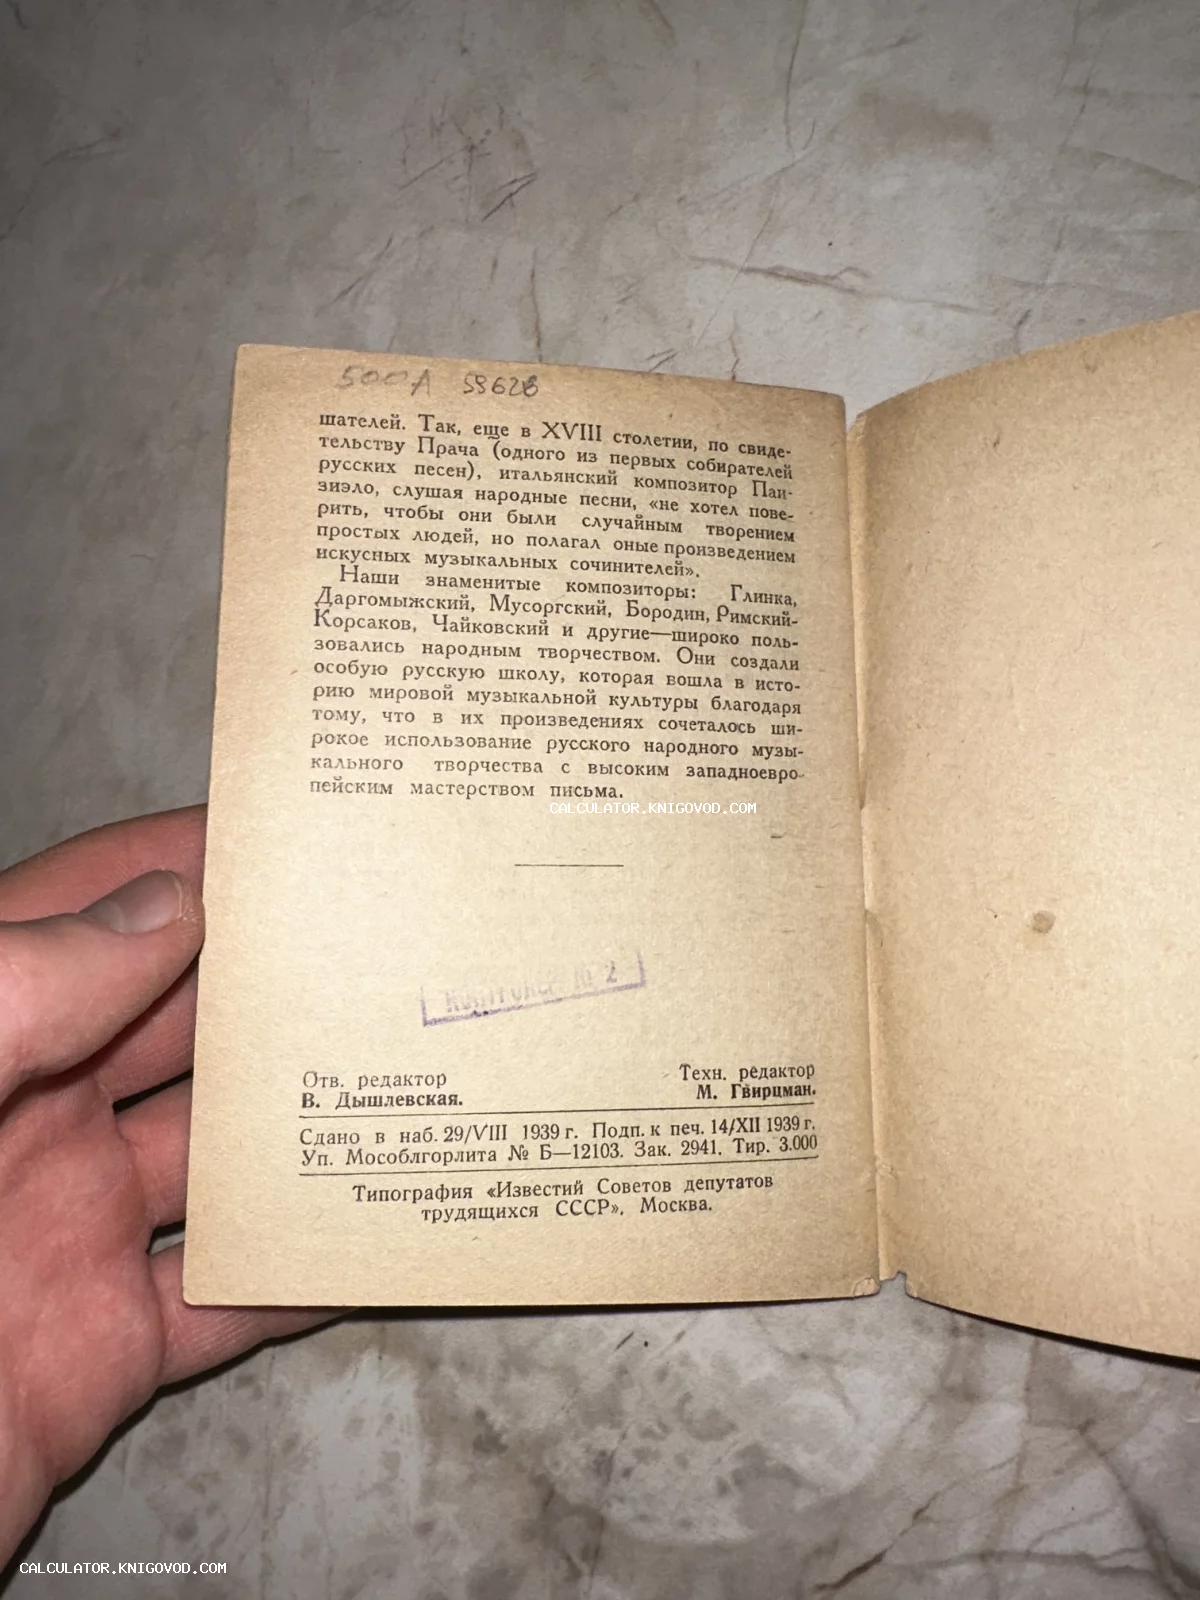 500А 5962в
шателей. Так, еще в XVIII столетии, по свиде-
тельству Прача (одного из первых собирателей
русских песен), итальянский композитор Паи-
зиэло, слушая народные песни, «не хотел пове-
рить, чтобы они были случайным творением
простых людей, но полагал оные произведением
искусных музыкальных сочинителей».
Наши знаменитые композиторы: Глинка,
Даргомыжский, Мусоргский, Бородин, Римский-
Корсаков, Чайковский и другие—широко поль-
зовались народным творчеством. Они создали
особую русскую школу, которая вошла в исто-
рию мировой музыкальной культуры благодаря
тому, что в их произведениях сочеталось ши-
рокое использование русского народного музы-
кального творчества с высоким западноевро-
пейским мастерством письма.
CALCULATOR.KNIGOVOD.COM
№ 2
Отв. редактор
В. Дышлевская.
Техн. редактор
М. Гвирцман.
Сдано в наб. 29/VIII 1939 г. Подп. к печ. 14/XII 1939 г.
Уп. Мособлгорлита № Б—12103. Зак. 2941. Тир. 3.000
Типография «Известий Советов депутатов
трудящихся СССР». Москва.
CALCULATOR.KNIGOVOD.COM